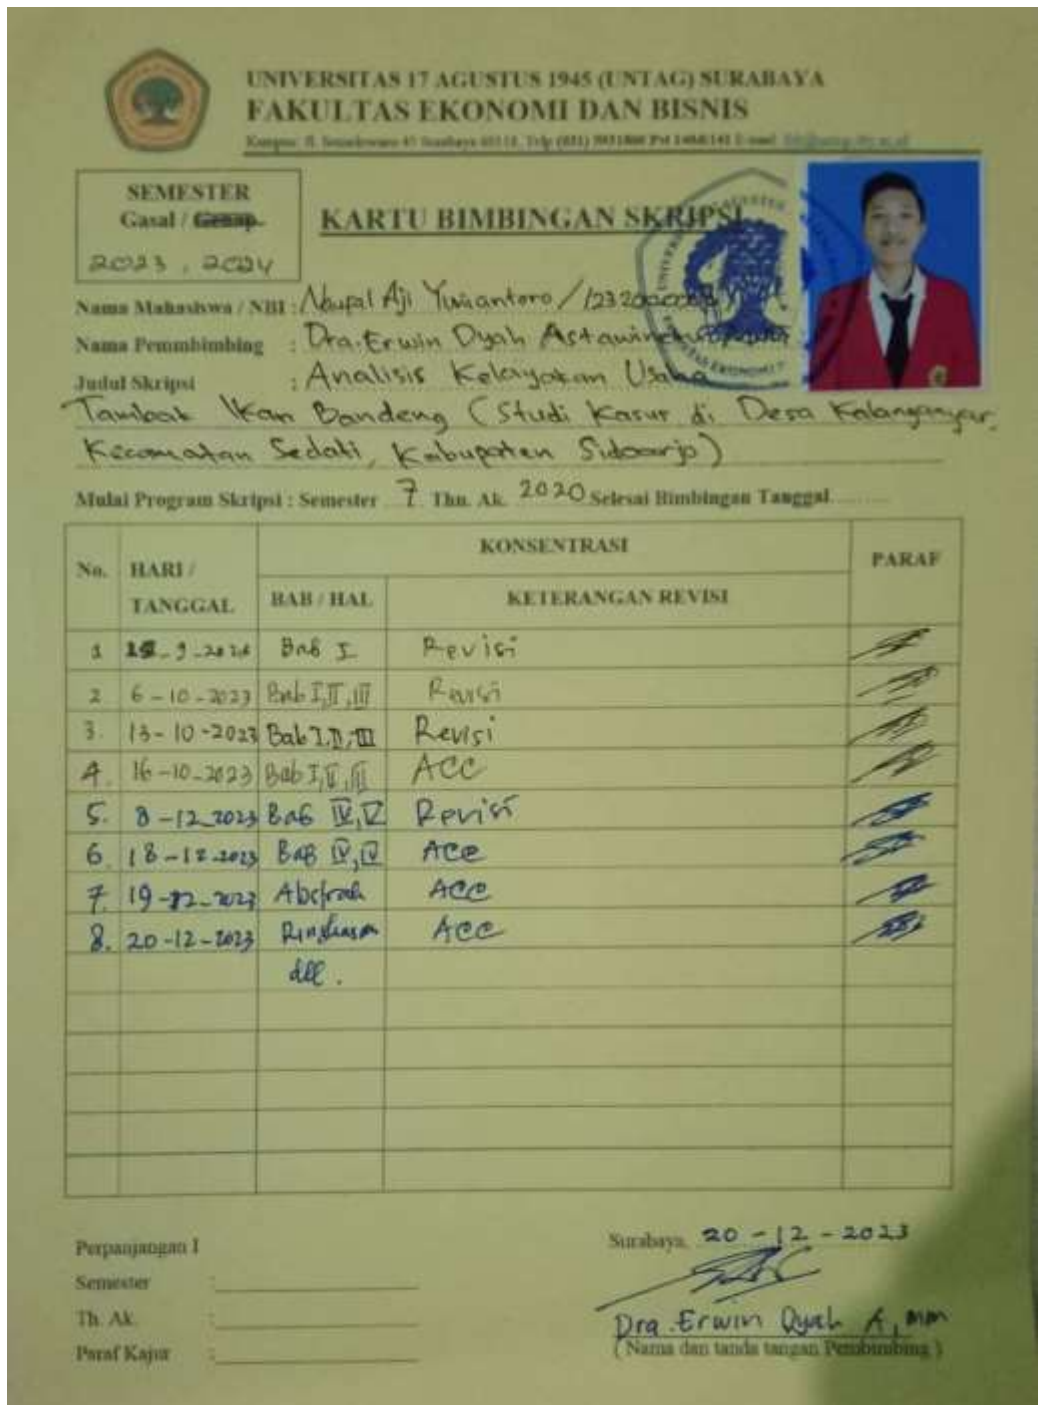 UNIVERSITAS 17 AGUSTUS 1945 (UNTAG) SURABAYA
FAKULTAS EKONOMI DAN BISNIS
SEMESTER
Gasal / Genap
2023, 2024
KARTU BIMBINGAN SKRIPSI
Nama Mahasiswa / NBI : Naupal Aji Yuwiantoro /
Nama Pemmbimbing : Dra. Erwin Dyah
Judul Skripsi : Analisis Kelayakan Usaha
Tambak Ikan Bandeng (Studi Kasus di Desa Kalanganyar,
Kecamatan Sedati, Kabupaten Sidoarjo)
Mulai Program Skripsi : Semester 7 Thn. Ak. 2020 Selesai Bimbingan Tanggal
No. HARI / TANGGAL KONSENTRASI PARAF
BAB / HAL KETERANGAN REVISI
1 Bab I Revisi
2 6-10-2023 Bab I, II, III Revisi
3. 13-10-2023 Bab I, II, III Revisi
4. 16-10-2023 Bab I, II, III ACC
5. 8-12-2023 Bab IV, V Revisi
6. 18-12-2023 Bab IV, V Acc
7. 19-12-2023 Abstrak ACC
8. 20-12-2023 Ringkasan ACC
dll.
Perpanjangan I
Semester :
Th. Ak. :
Paraf Kajur :
Surabaya, 20-12-2023
Dra. Erwin Dyah A, MM
( Nama dan tanda tangan Pembimbing )